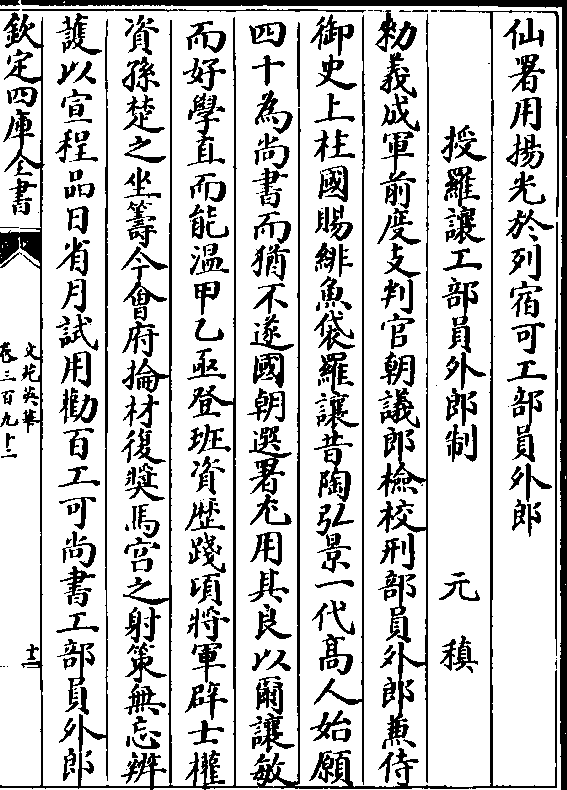 仙署用揚光於列宿可工部員外郎
授羅讓工部員外郎制 元稹
勑義成軍前度支判官朝議郎檢校刑部員外郎兼侍
御史上柱國賜緋魚袋羅讓昔陶弘景一代高人始願
四十為尚書而猶不遂國朝選署尤用其良以爾讓敏
而好學直而能溫甲乙亟登班資歴踐頃將軍辟士權
資孫楚之坐籌今會府掄材復奬馬宫之射策無忘辨
護以宣程品日省月試用勸百工可尚書工部員外郎
欽定四庫全書
文苑英華
卷三百九十二
十二